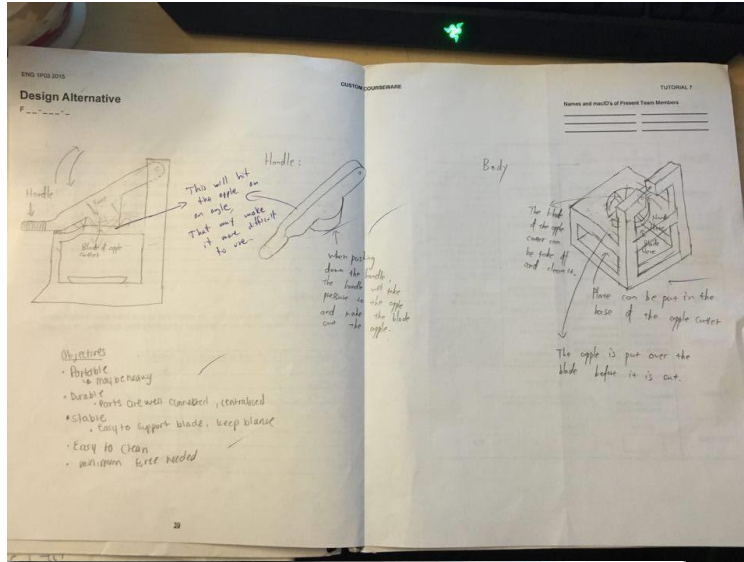 ENG 1P03 2015
CUSTOM COURSEWARE
TUTORIAL 7
Design Alternative
F _ _ - _ _ _ - _
Names and macID's of Present Team Members
Handle
Blade of apple
cutter
This will hit
the apple on
an angle,
That may make
it more difficult
to use
Handle:
when pushing
down the handle,
The handle will take
pressure to the apple
and make the blade
cut the apple.
Body
The blade
of the apple
cutter can
be take off
and clean it.
Plate can be put in the
base of the apple cutter
The apple is put over the
blade before it is cut.
Objectives
• Portable
• may be heavy
• Durable
• Parts are well connected, centralised
• Stable
• Easy to support blade, keep blanse
• Easy to clean
• minimum force needed
39